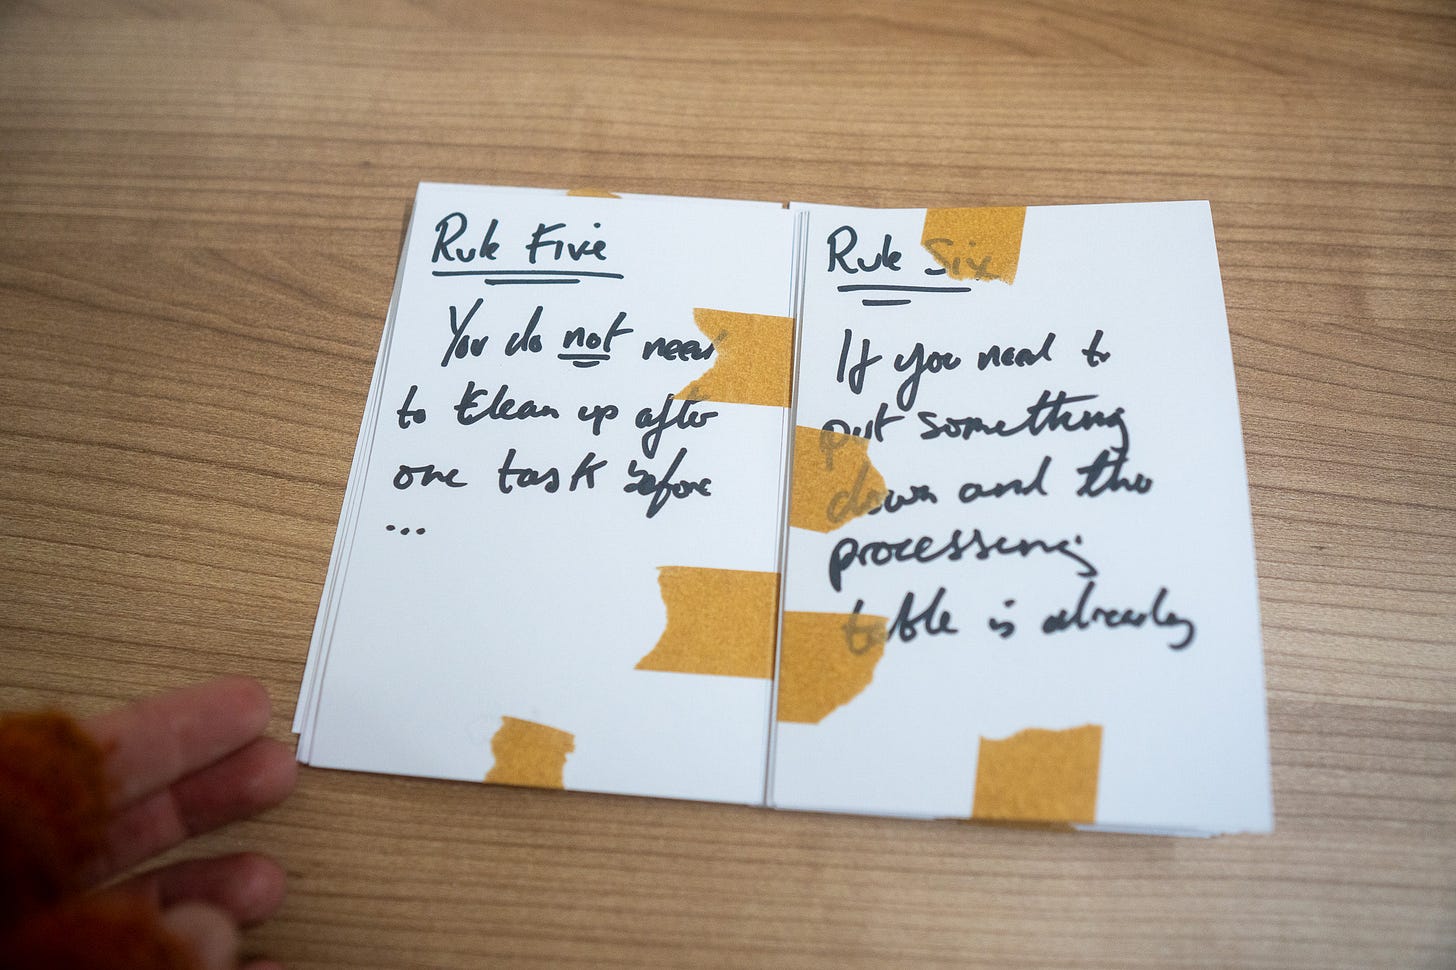 Rule Five
You do not need
to clean up after
one task before
...
Rule Six
If you need to
put something
down and the
processing
table is already